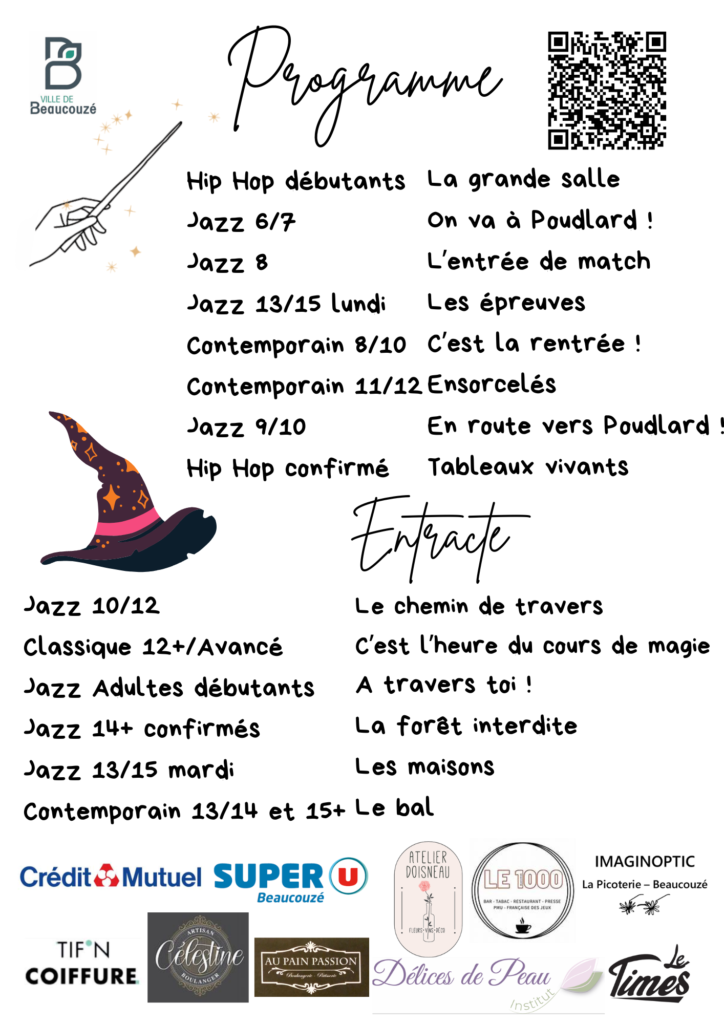 VILLE DE
Beaucouzé
Programme
Hip Hop débutants La grande salle
Jazz 6/7 On va à Poudlard !
Jazz 8 L'entrée de match
Jazz 13/15 lundi Les épreuves
Contemporain 8/10 C'est la rentrée !
Contemporain 11/12 Ensorcelés
Jazz 9/10 En route vers Poudlard !
Hip Hop confirmé Tableaux vivants
Entracte
Jazz 10/12 Le chemin de travers
Classique 12+/Avancé C'est l'heure du cours de magie
Jazz Adultes débutants A travers toi !
Jazz 14+ confirmés La forêt interdite
Jazz 13/15 mardi Les maisons
Contemporain 13/14 et 15+ Le bal
Crédit Mutuel
SUPER U
Beaucouzé
ATELIER
DOISNEAU
FLEURS-VINS-DÉCO
LE 1000
BAR - TABAC - RESTAURANT - PRESSE
PMU - FRANÇAISE DES JEUX
IMAGINOPTIC
La Picoterie – Beaucouzé
TIF'N
COIFFURE
ARTISAN
Célestine
BOULANGER
AU PAIN PASSION
Boulangerie Pâtisserie
Délices de Peau
Institut
Le
Times